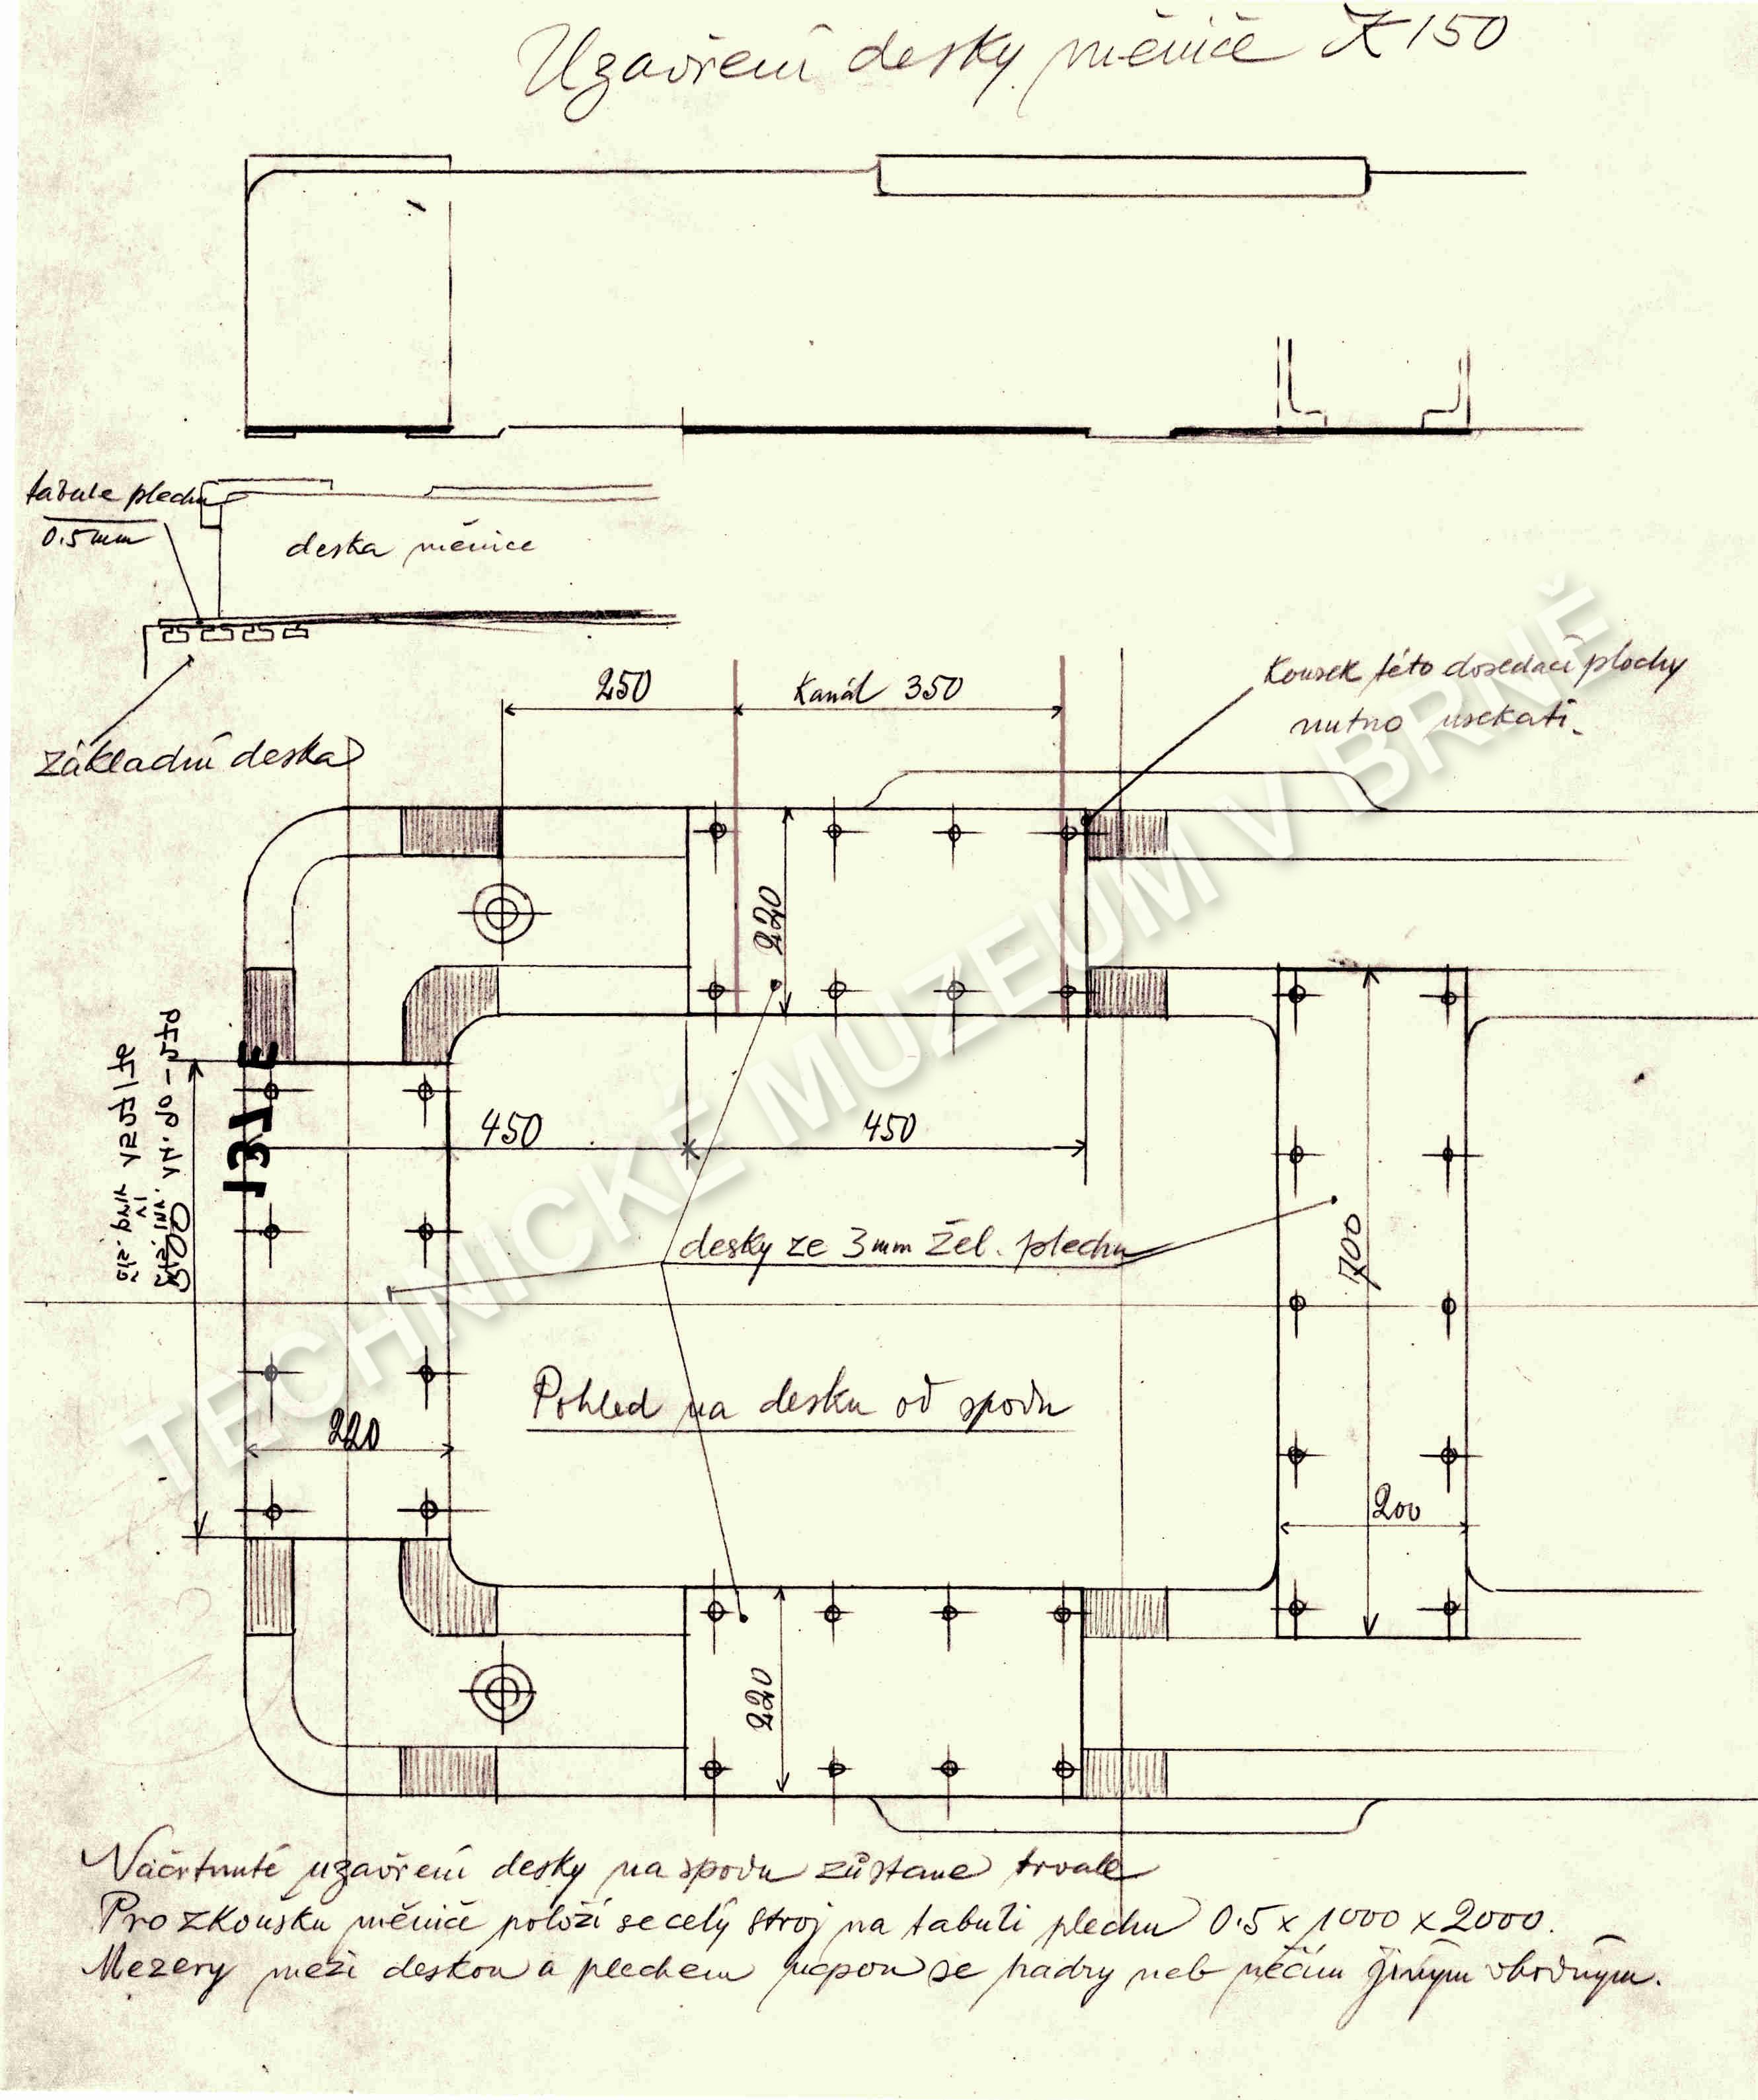 Uzavření desky měniče Ž 150
tabule plechu
0.5 mm
deska měniče
základní deska
250
Kanál 350
Kousek této dosedací plochy
nutno usekati.
220
450
450
131E
500
desky ze 3mm žel. plechu
700
Pohled na desku od spodu
220
200
220
Načrtnuté uzavření desky na spodu zůstane trvale
Pro zkoušku měniče položí se celý stroj na tabuli plechu 0.5 x 1000 x 2000.
Mezery mezi deskou a plechem ucpou se hadry neb něčím jiným vhodným.
TECHNICKÉ MUZEUM V BRNĚ